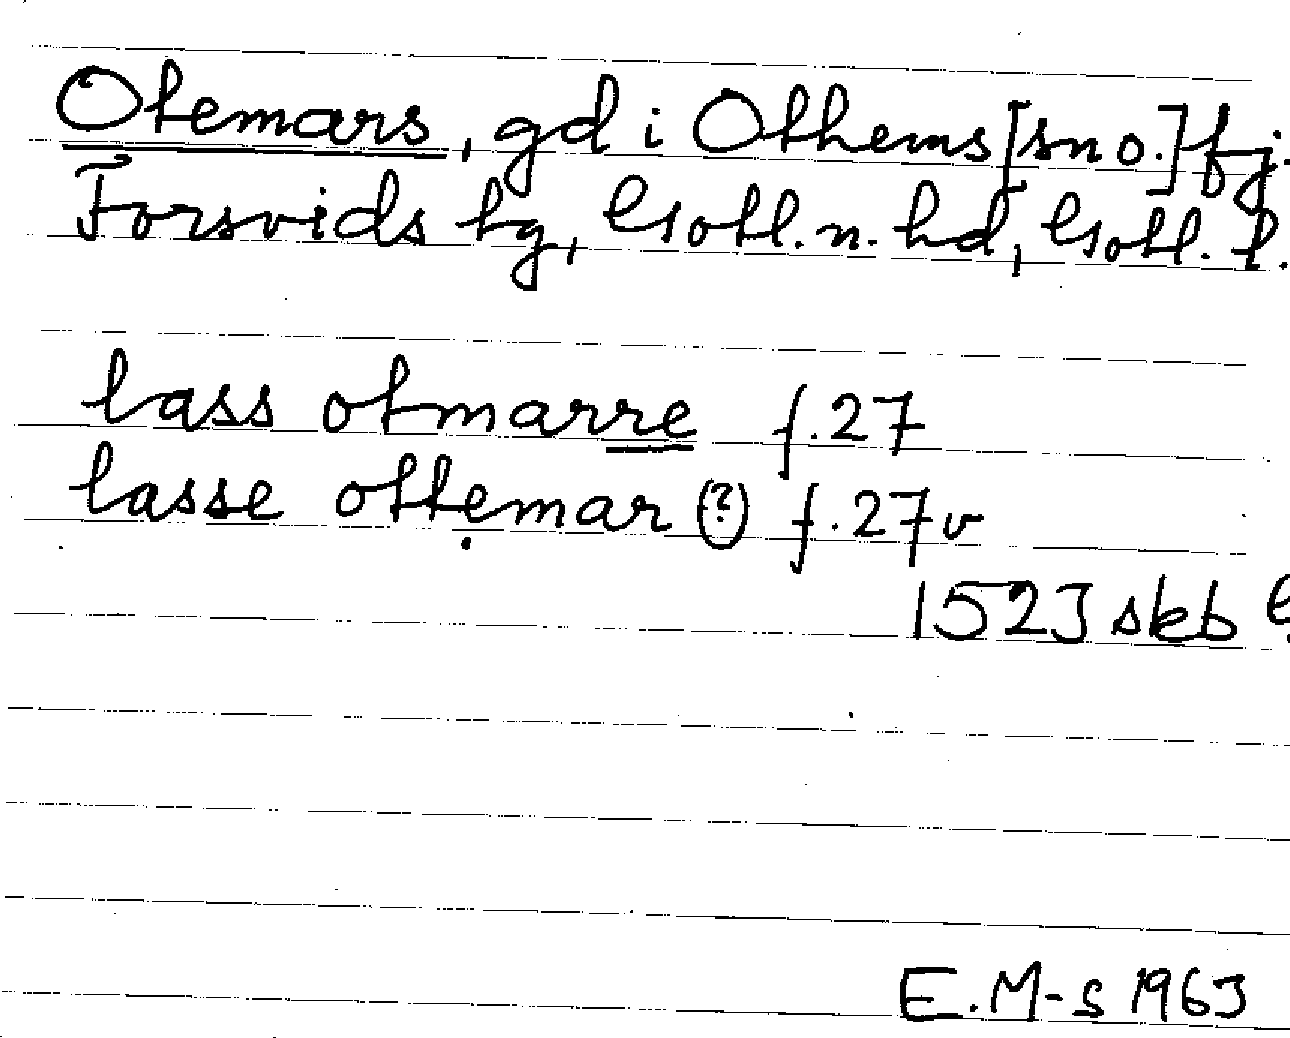 Otemars, gd i Othems [sn o.] fj.
Forsvids tg, Gotl. n. hd, Gotl. l.
lass otmarre f. 27
lasse ottemar (?) f. 27v
1523 skb
E. M-s 1963